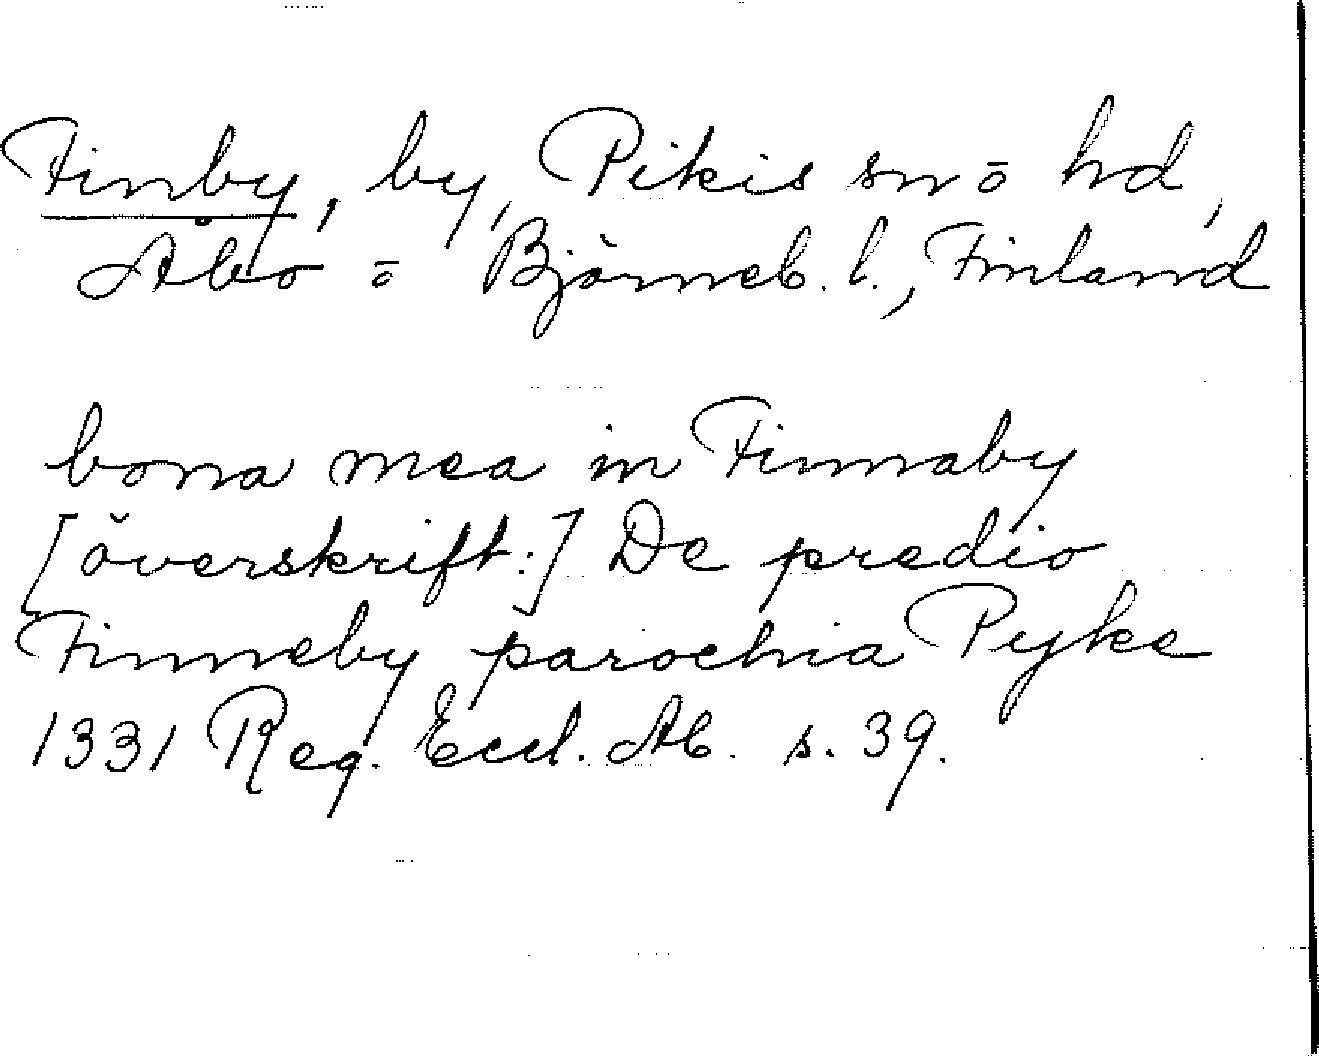 Finby, by, Pikis sn o hd,
Åbo o Björneb. l., Finland
bona mea in Finnaby
[överskrift:] De predio
Finneby parochia Pyke
1331 Reg. Eccl. Ab. s. 39.